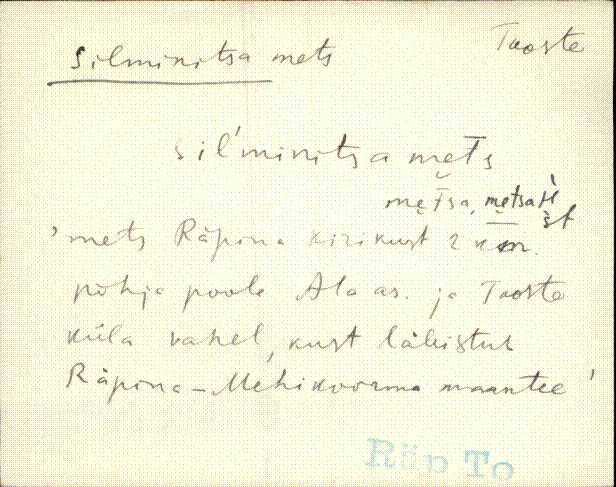 silminitsa mets Tooste
sil'minitsa mets
metsa, metsaH
st
'mets Räpina kirikust 2 km.
põhja poole Ala as. ja Tooste
küla vahel, kust läbistub
Räpina-Mehikoorma maantee'
Räp To